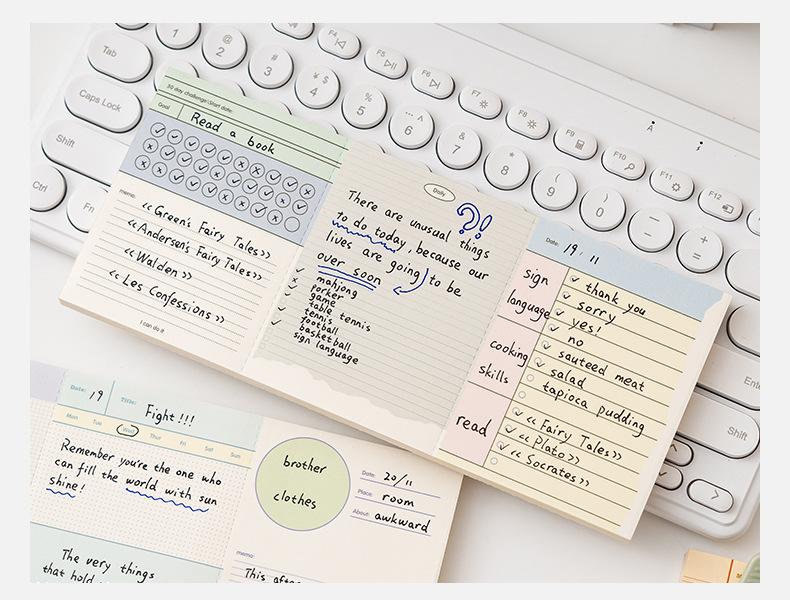 30 day challenge\Start date:
Goal
Read a book
memo:
《Green's Fairy Tales》
《Andersen's Fairy Tales》
《Walden》
《Les Confessions》
I can do it
Daily
There are unusual things ?!
to do today, because our
lives are going to be
over soon
mahjong
porker
game
table tennis
tennis
football
basketball
sign language
Date: 19 . 11
sign
language
thank you
sorry
yes!
no
cooking
skills
sauteed meat
salad
tapioca pudding
read
《Fairy Tales》
《Plato》
《Socrates》
Date: 19
Title: Fight!!!
Mon Tue Wed Thur Fri Sat Sun
Remember you're the one who
can fill the world with sun
shine!
The very things
that hold
brother
clothes
Date: 20/11
Place: room
About: awkward
memo:
Tab
Caps Lock
Shift
Ctrl
Fn
1
@ 2
# 3
¥ $ 4
% 5
… ^ 6
& 7
* 8
( 9
) 0
—
+ =
F4
F5
F6
F7
F8
F9
F10
F11
F12
A
Shift